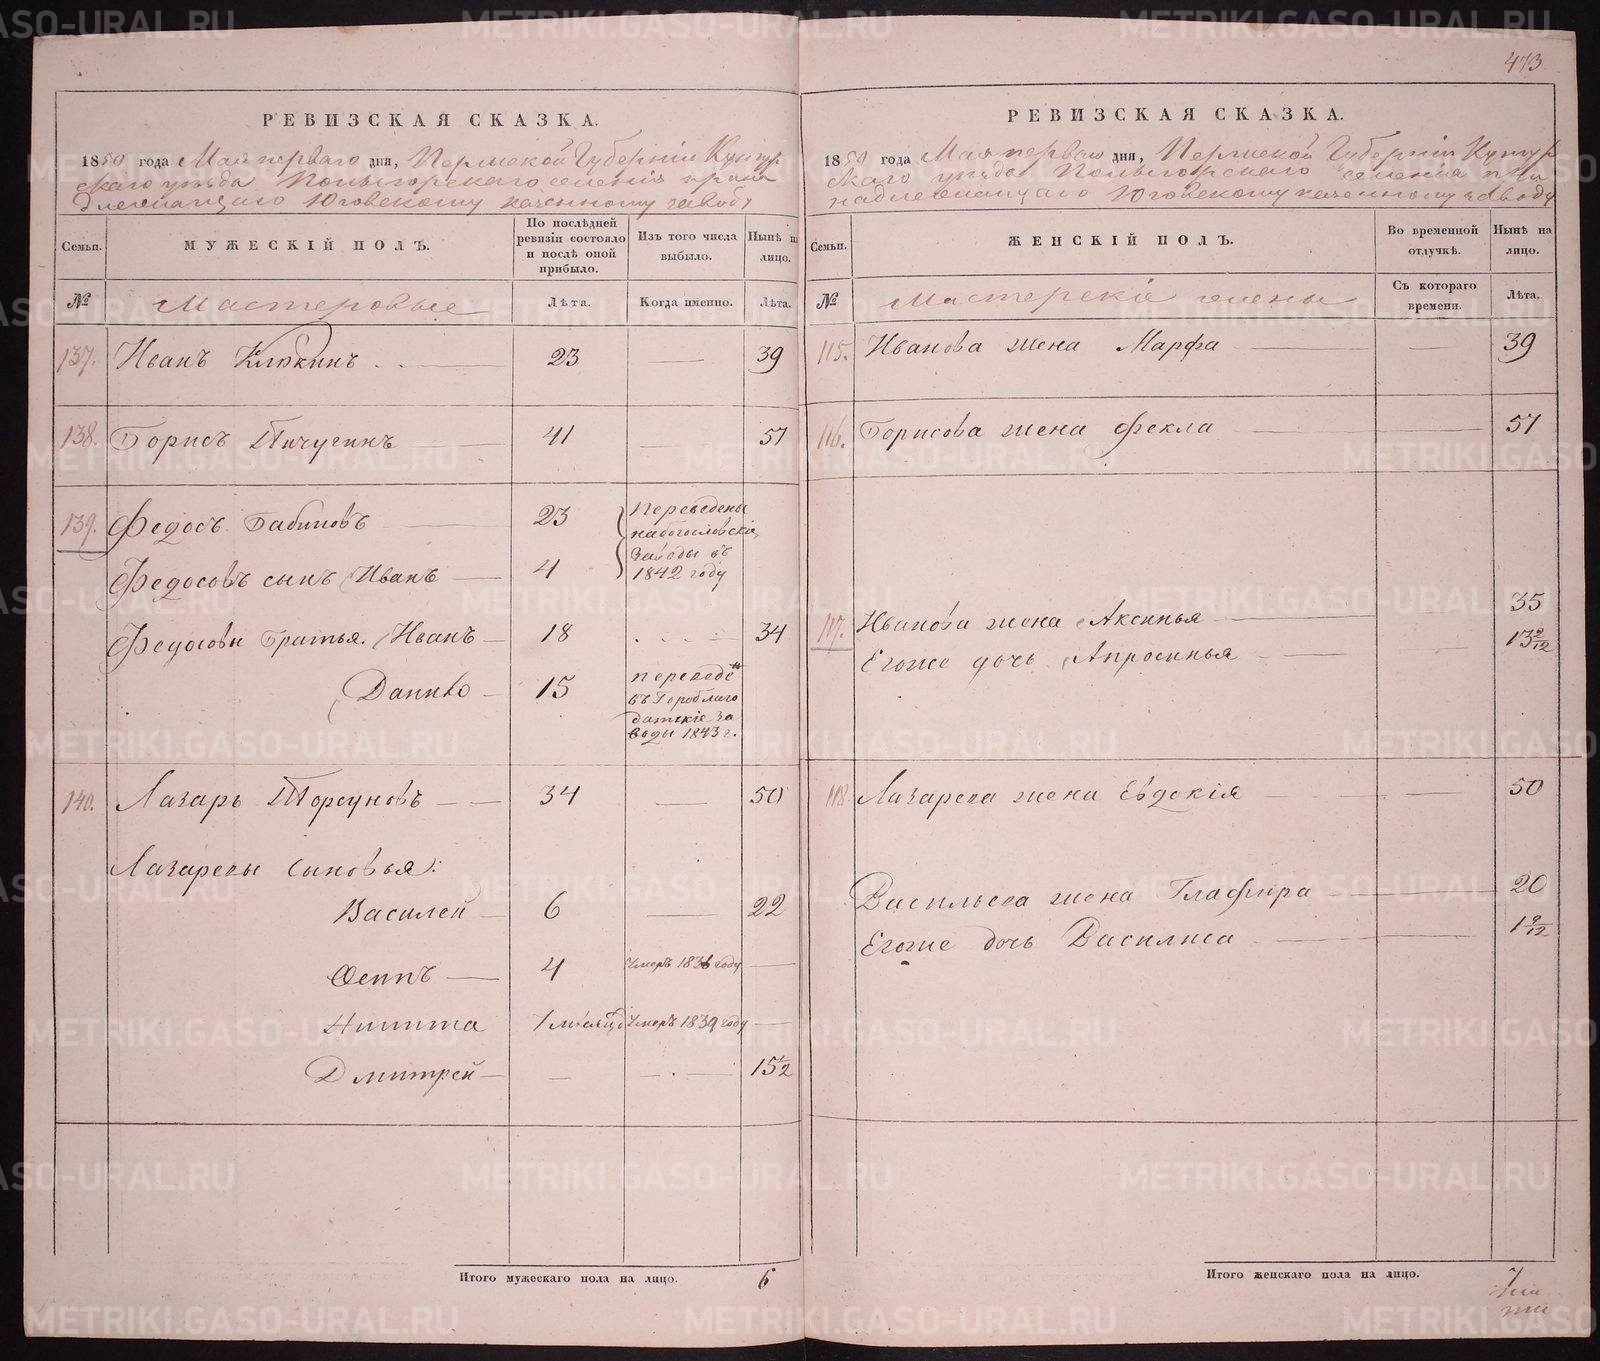 473
РЕВИЗСКАЯ СКАЗКА.
1850 года Мая первого дня, Пермской Губернии Кунгур
скаго уезда селения прина
длежащаго Юговскому казенному заводу
Семьи. МУЖЕСКІЙ ПОЛЪ. По послѣдней ревизіи состояло и послѣ оной прибыло. Изъ того числа выбыло. Нынѣ на лицо.
№ Мастеровые Лѣта. Когда именно. Лѣта.
137. Иванъ Клюкинъ 23 — 39
138. Борисъ Пичугинъ 41 — 57
139. Федосъ Бабиновъ 23 Переведены
на богословскіе
Федосовъ сынъ Иванъ 4 заводы въ
1842 году
Федосовы братья. Иванъ 18 34
Данило 15 переведе
въ Гороблаго
датскіе за
воды 1843 г.
140. Лазарь Торсуновъ 34 — 50
Лазаревы сыновья:
Василей 6 — 22
Осипъ 4 умеръ году —
Никита 1 мѣсяцъ умеръ 1839 году —
Дмитрей — — 15 1/2
Итого мужескаго пола на лицо. 6
РЕВИЗСКАЯ СКАЗКА.
1850 года Мая перваго дня, Пермской Губерніи Кунгур
скаго уезда селения при
надлежащаго Юговскому казенному заводу
Семьи. ЖЕНСКІЙ ПОЛЪ. Во временной отлучкѣ. Нынѣ на лицо.
№ Мастерскіе жены Съ котораго времени. Лѣта.
115. Иванова жена Марфа — 39
116. Борисова жена Фекла — 57
117. Иванова жена Аксинья 35
Егоже дочь Апросинья — 13 9/12
118 Лазарева жена Евдокія — 50
Васильева жена Глафира — 20
Егоже дочь Василиса — 1 9/12
Итого женскаго пола на лицо. 7
METRIKI.GASO-URAL.RU